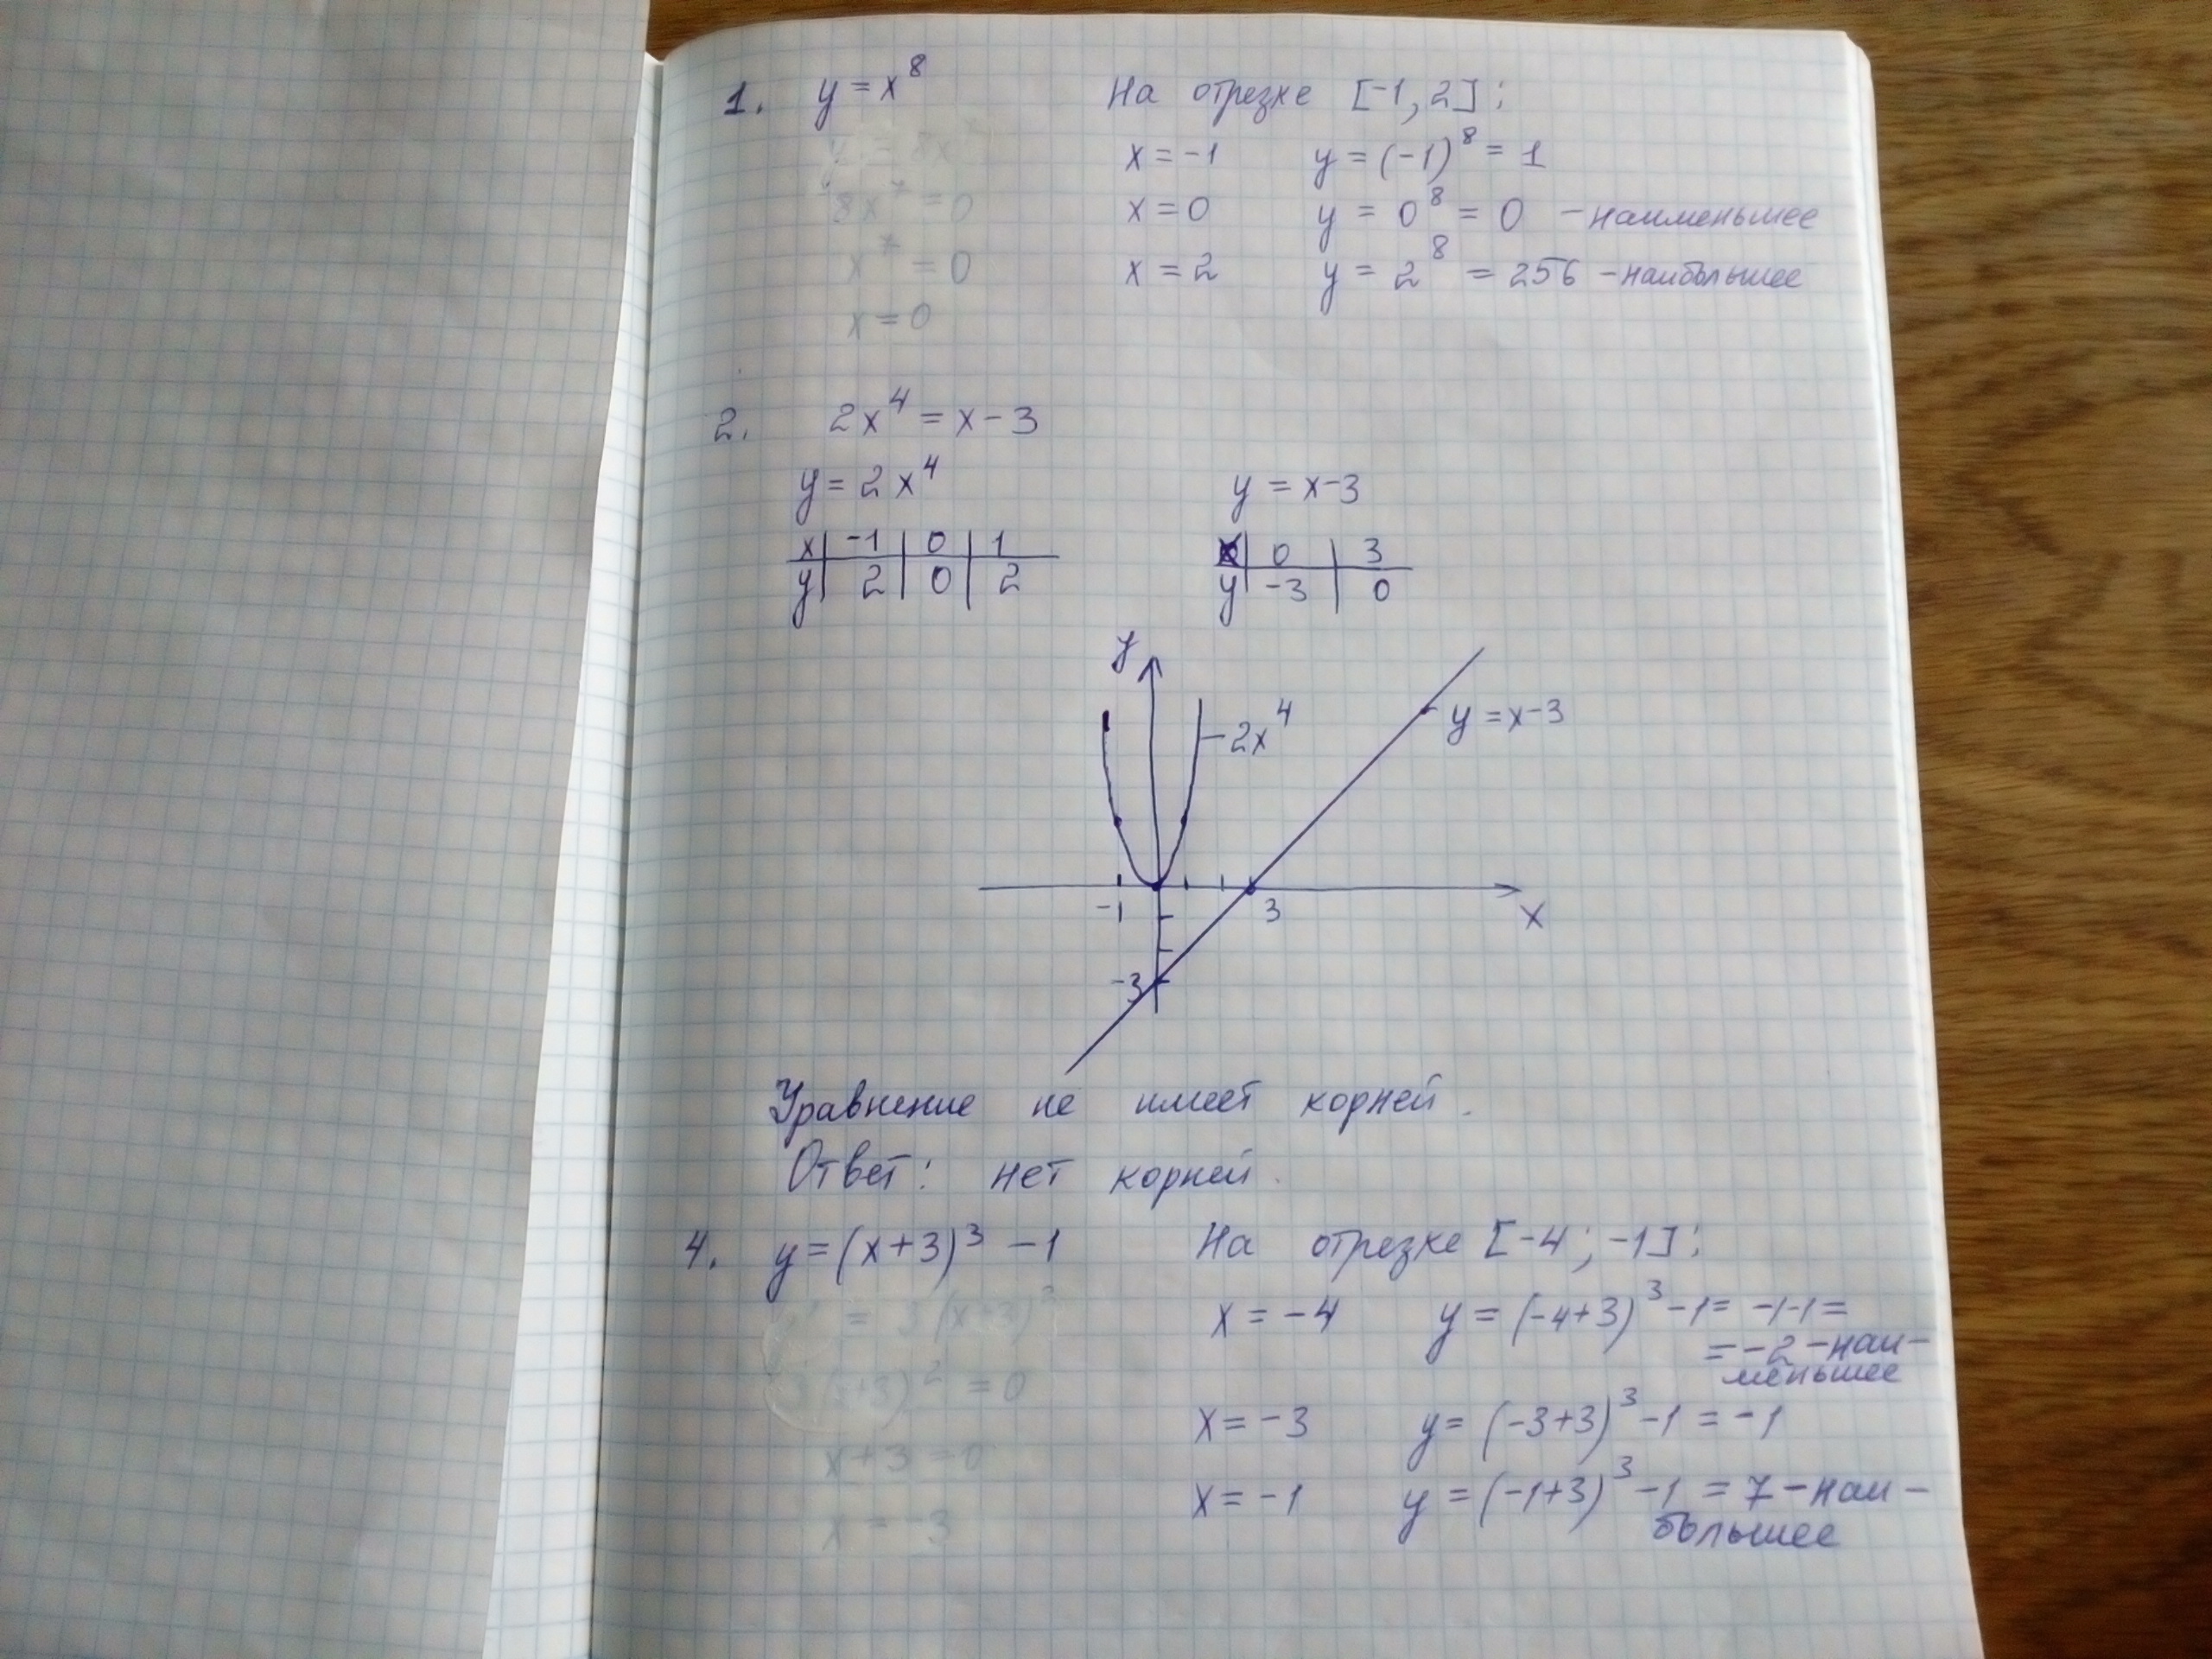 1. y = x⁸ На отрезке [-1, 2]:
x = -1 y = (-1)⁸ = 1
8x⁷ = 0 x = 0 y = 0⁸ = 0 - наименьшее
x⁷ = 0 x = 2 y = 2⁸ = 256 - наибольшее
x = 0
2. 2x⁴ = x - 3
y = 2x⁴ y = x-3
x | -1 | 0 | 1 x | 0 | 3
y | 2 | 0 | 2 y | -3 | 0
y
2x⁴ y = x-3
-1 3 x
-3
Уравнение не имеет корней.
Ответ: нет корней.
4. y = (x+3)³ - 1 На отрезке [-4; -1]:
= 3(x+3)² x = -4 y = (-4+3)³ - 1 = -1-1 =
= -2 - наи-
меньшее
3(x+3)² = 0 x = -3 y = (-3+3)³ - 1 = -1
x + 3 = 0
x = -1 y = (-1+3)³ - 1 = 7 - наи-
большее
x = -3